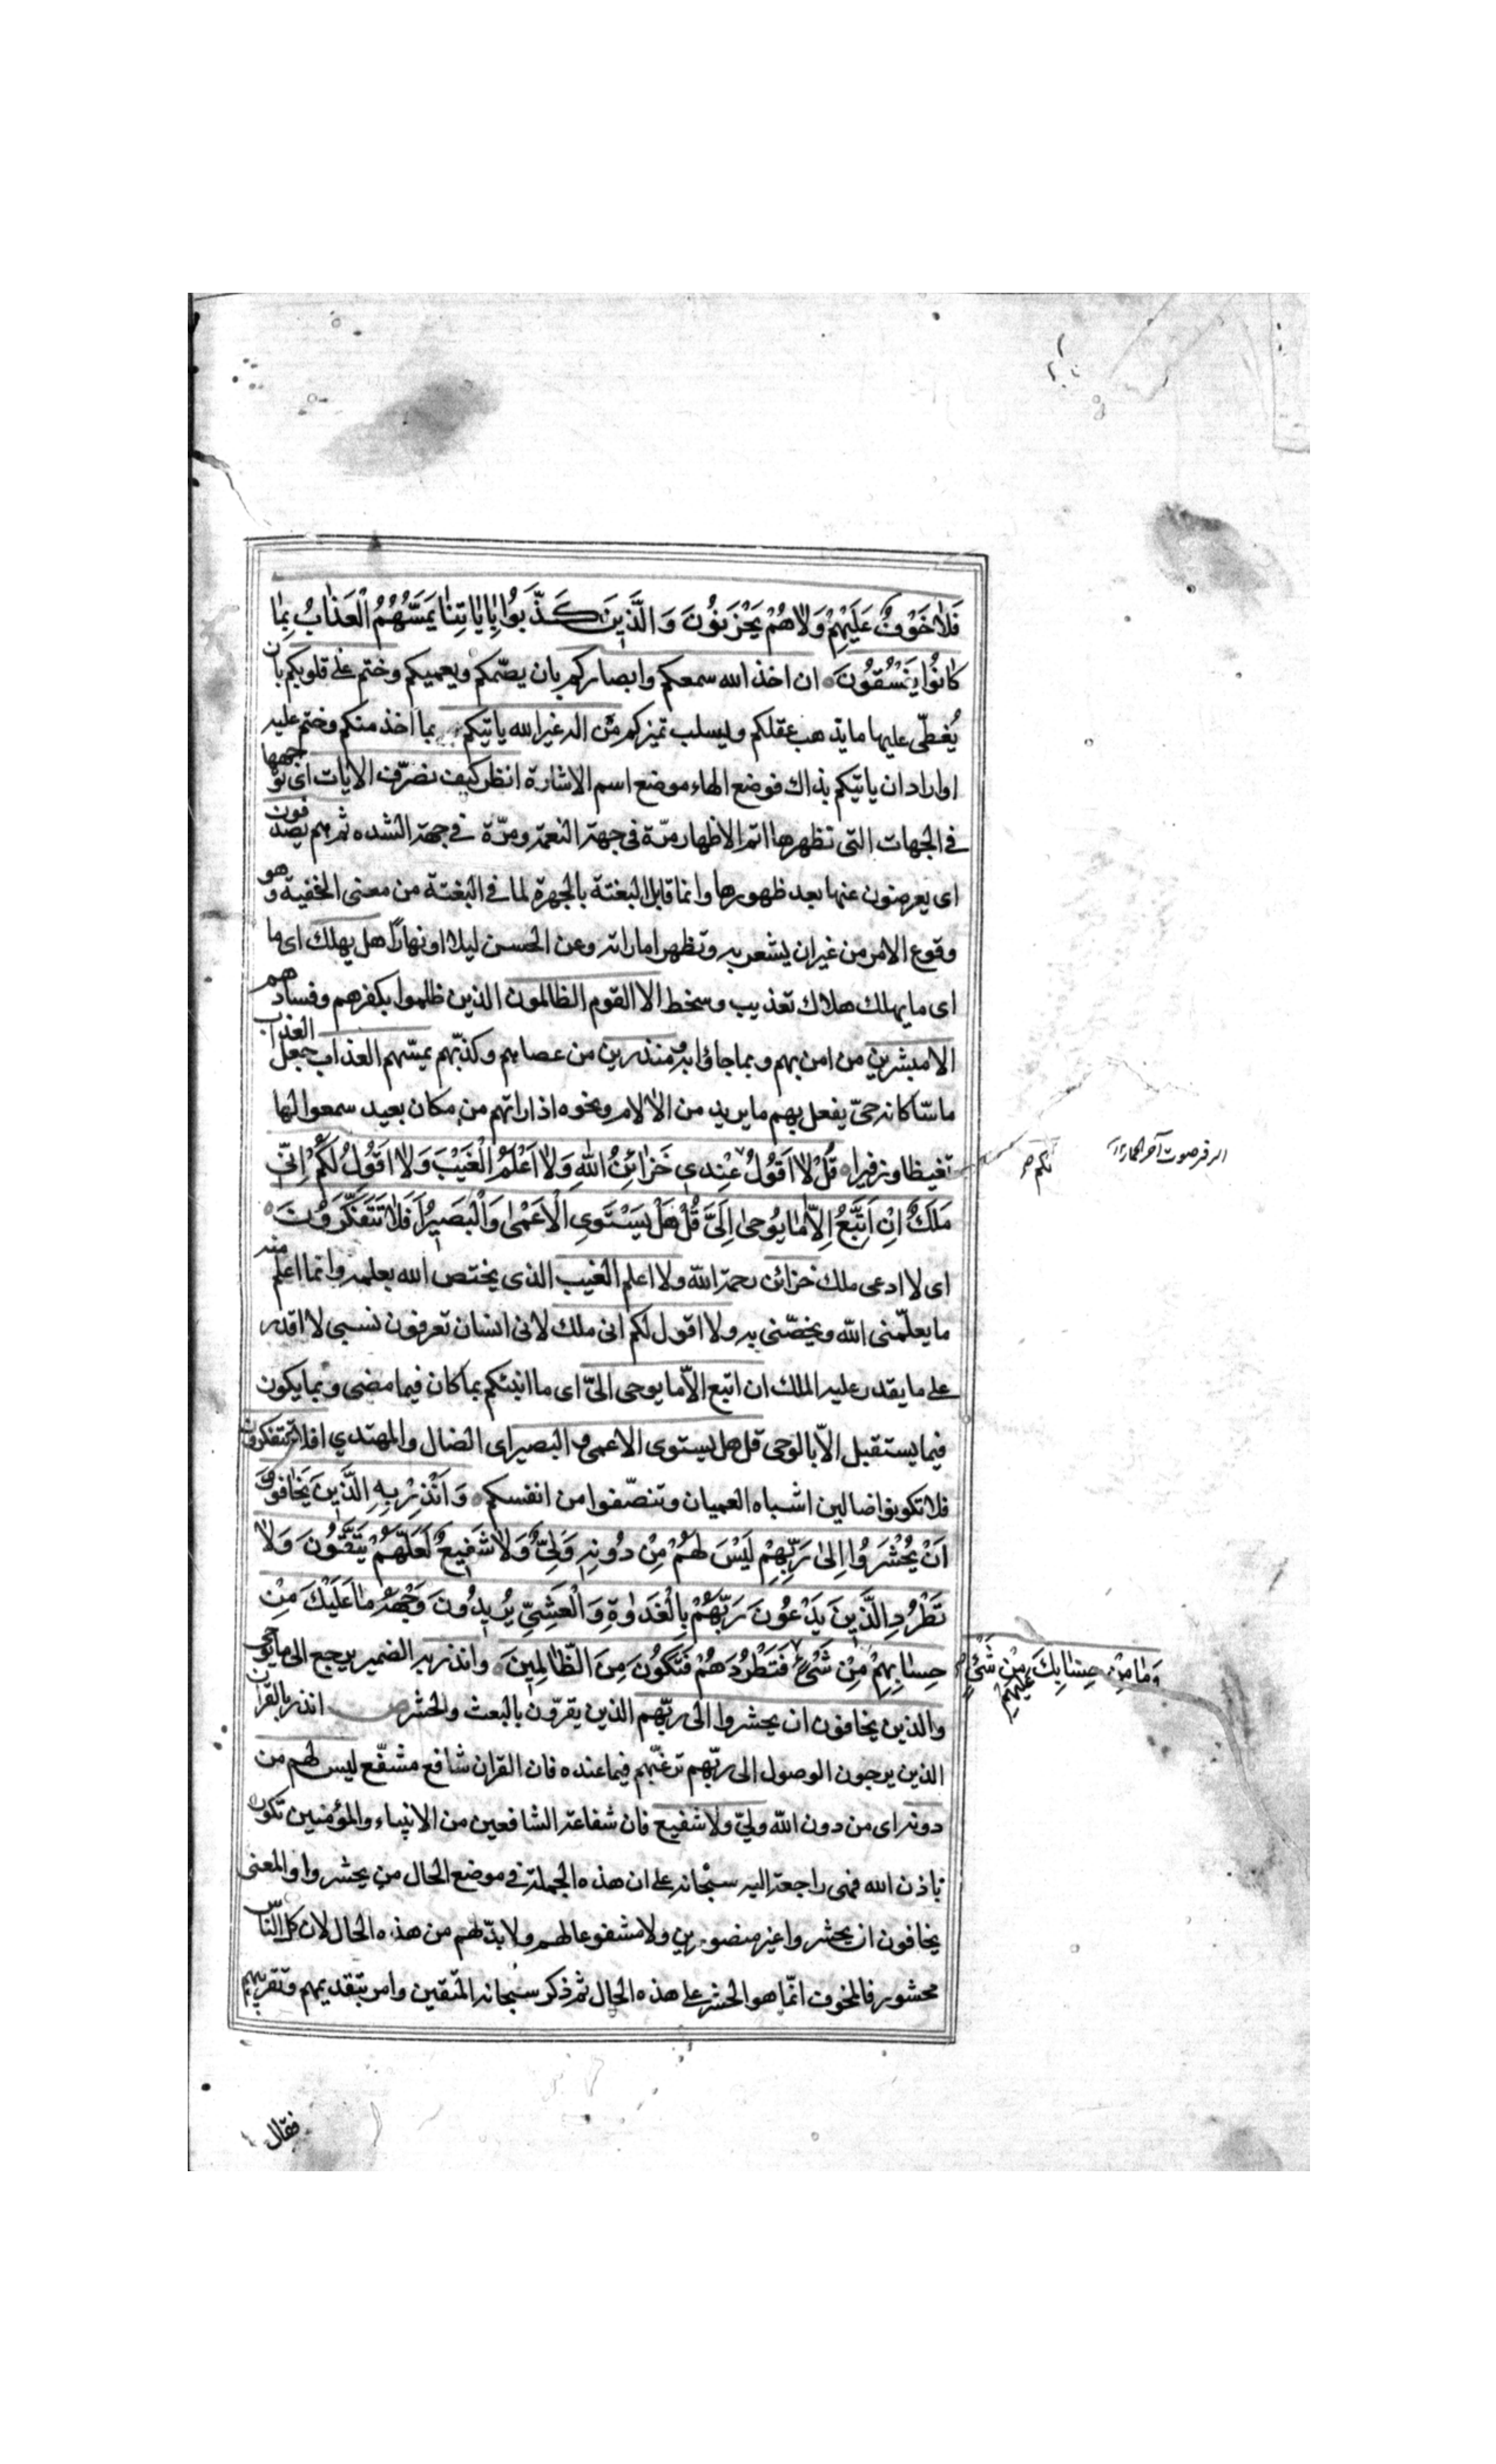 فَلٰا خَوْفٌ عَلَيْهِمْ وَلٰا هُمْ يَحْزَنُونَ وَالَّذِينَ كَذَّبُوا بِاٰيٰاتِنٰا يَمَسُّهُمُ الْعَذٰابُ بِمٰا
كٰانُوا يَفْسُقُونَ ان اخذ الله سمعكم وابصاركم بان يصمّكم ويعميكم وختم على قلوبكم بان
يُغطّى عليها ما يذهب عقلكم ويسلب تميزكم مَن اله غير الله ياتيكم به بما اخذ منكم وختم عليه
او اراد ان ياتيكم بذاك فوضع الهاء موضع اسم الاشارة انظر كيف نصرّف الايات اى نوجهها
فى الجهات التى تظهرها اتم الاظهار مرّة فى جهة النعمة ومرّة فى جهة الشده ثم هم يصدفون
اى يعرضون عنها بعد ظهورها وانما قابل البغتة بالجهرة لما فى البغتة من معنى الخفية وهو
وقوع الامر من غير ان يشعر به وتظهر اماراته وعن الحسن ليلا او نهاراً هل يهلك اى ما
اى ما يهلك هلاك تعذيب وسخط الا القوم الظالمون الذين ظلموا بكفرهم وفسادهم
الا مبشرين من امن بهم وبما جاؤا به ومنذرين من عصاهم وكذّبهم يمسّهم العذاب جعل العذاب
ماسّا كانه حىّ يفعل بهم ما يريد من الالام ونحوه اذا راتهم من مكان بعيد سمعوا لها
تغيظا وزفيرا قُلْ لٰا اَقُولُ عِنْدِي خَزٰائِنُ اللّٰهِ وَلٰا اَعْلَمُ الْغَيْبَ وَلٰا اَقُولُ لَكُمْ اِنِّي
لكم صح
الزفر صوت آخر الحمار
مَلَكٌ اِنْ اَتَّبِعُ اِلّٰا مٰا يُوحىٰ اِلَيَّ قُلْ هَلْ يَسْتَوِي الْاَعْمىٰ وَالْبَصِيرُ اَفَلٰا تَتَفَكَّرُونَ
اى لا ادعى ملك خزائن رحمة الله ولا اعلم الغيب الذى يختص الله بعلمه وانما اعلم منه
ما يعلّمنى الله ويخصّنى به ولا اقول لكم انى ملك لانى انسان تعرفون نسبى لا اقدر
على ما يقدر عليه الملك ان اتبع الّا ما يوحى الىّ اى ما انبئكم بما كان فيما مضى وبما يكون
فيما يستقبل الّا بالوحى قل هل يستوى الاعمى والبصير اى الضال والمهتدي افلا تتفكرون
فلا تكونوا ضالين اشباه العميان وتنصّفوا من انفسكم وَاَنْذِرْ بِهِ الَّذِينَ يَخٰافُونَ
اَنْ يُحْشَرُوا اِلىٰ رَبِّهِمْ لَيْسَ لَهُمْ مِنْ دُونِهِ وَلِيٌّ وَلٰا شَفِيعٌ لَعَلَّهُمْ يَتَّقُونَ وَلٰا
تَطْرُدِ الَّذِينَ يَدْعُونَ رَبَّهُمْ بِالْغَدٰاوةِ وَالْعَشِيِّ يُرِيدُونَ وَجْهَهُ مٰا عَلَيْكَ مِنْ
حِسٰابِهِمْ مِنْ شَيْءٍ فَتَطْرُدَهُمْ فَتَكُونَ مِنَ الظّٰالِمِينَ وانذر به الضمير يرجع الى ما يوحى
وَمٰا مِنْ حِسٰابِكَ عَلَيْهِمْ مِنْ شَيْءٍ صح
والذين يخافون ان يحشروا الى ربّهم الذين يقرّون بالبعث والحشر انذر بالقران
الذين يرجون الوصول الى ربّهم ترغبّهم فيما عنده فان القران شافع مشفّع ليس لهم من
دونه اى من دون الله ولىّ ولا شفيع فان شفاعة الشافعين من الانبياء والمؤمنين تكون
باذن الله فهى راجعة اليه سبحانه على ان هذه الجملة فى موضع الحال من يحشروا والمعنى
يخافون ان يحشروا غير منصورين ولا مشفوعا لهم ولا بدّ لهم من هذه الحال لان كل الناس
محشور فالمخوف انّما هو الحشر على هذه الحال ثم ذكر سبحانه المتقين وامر بتقديمهم وتقريبهم
فقال